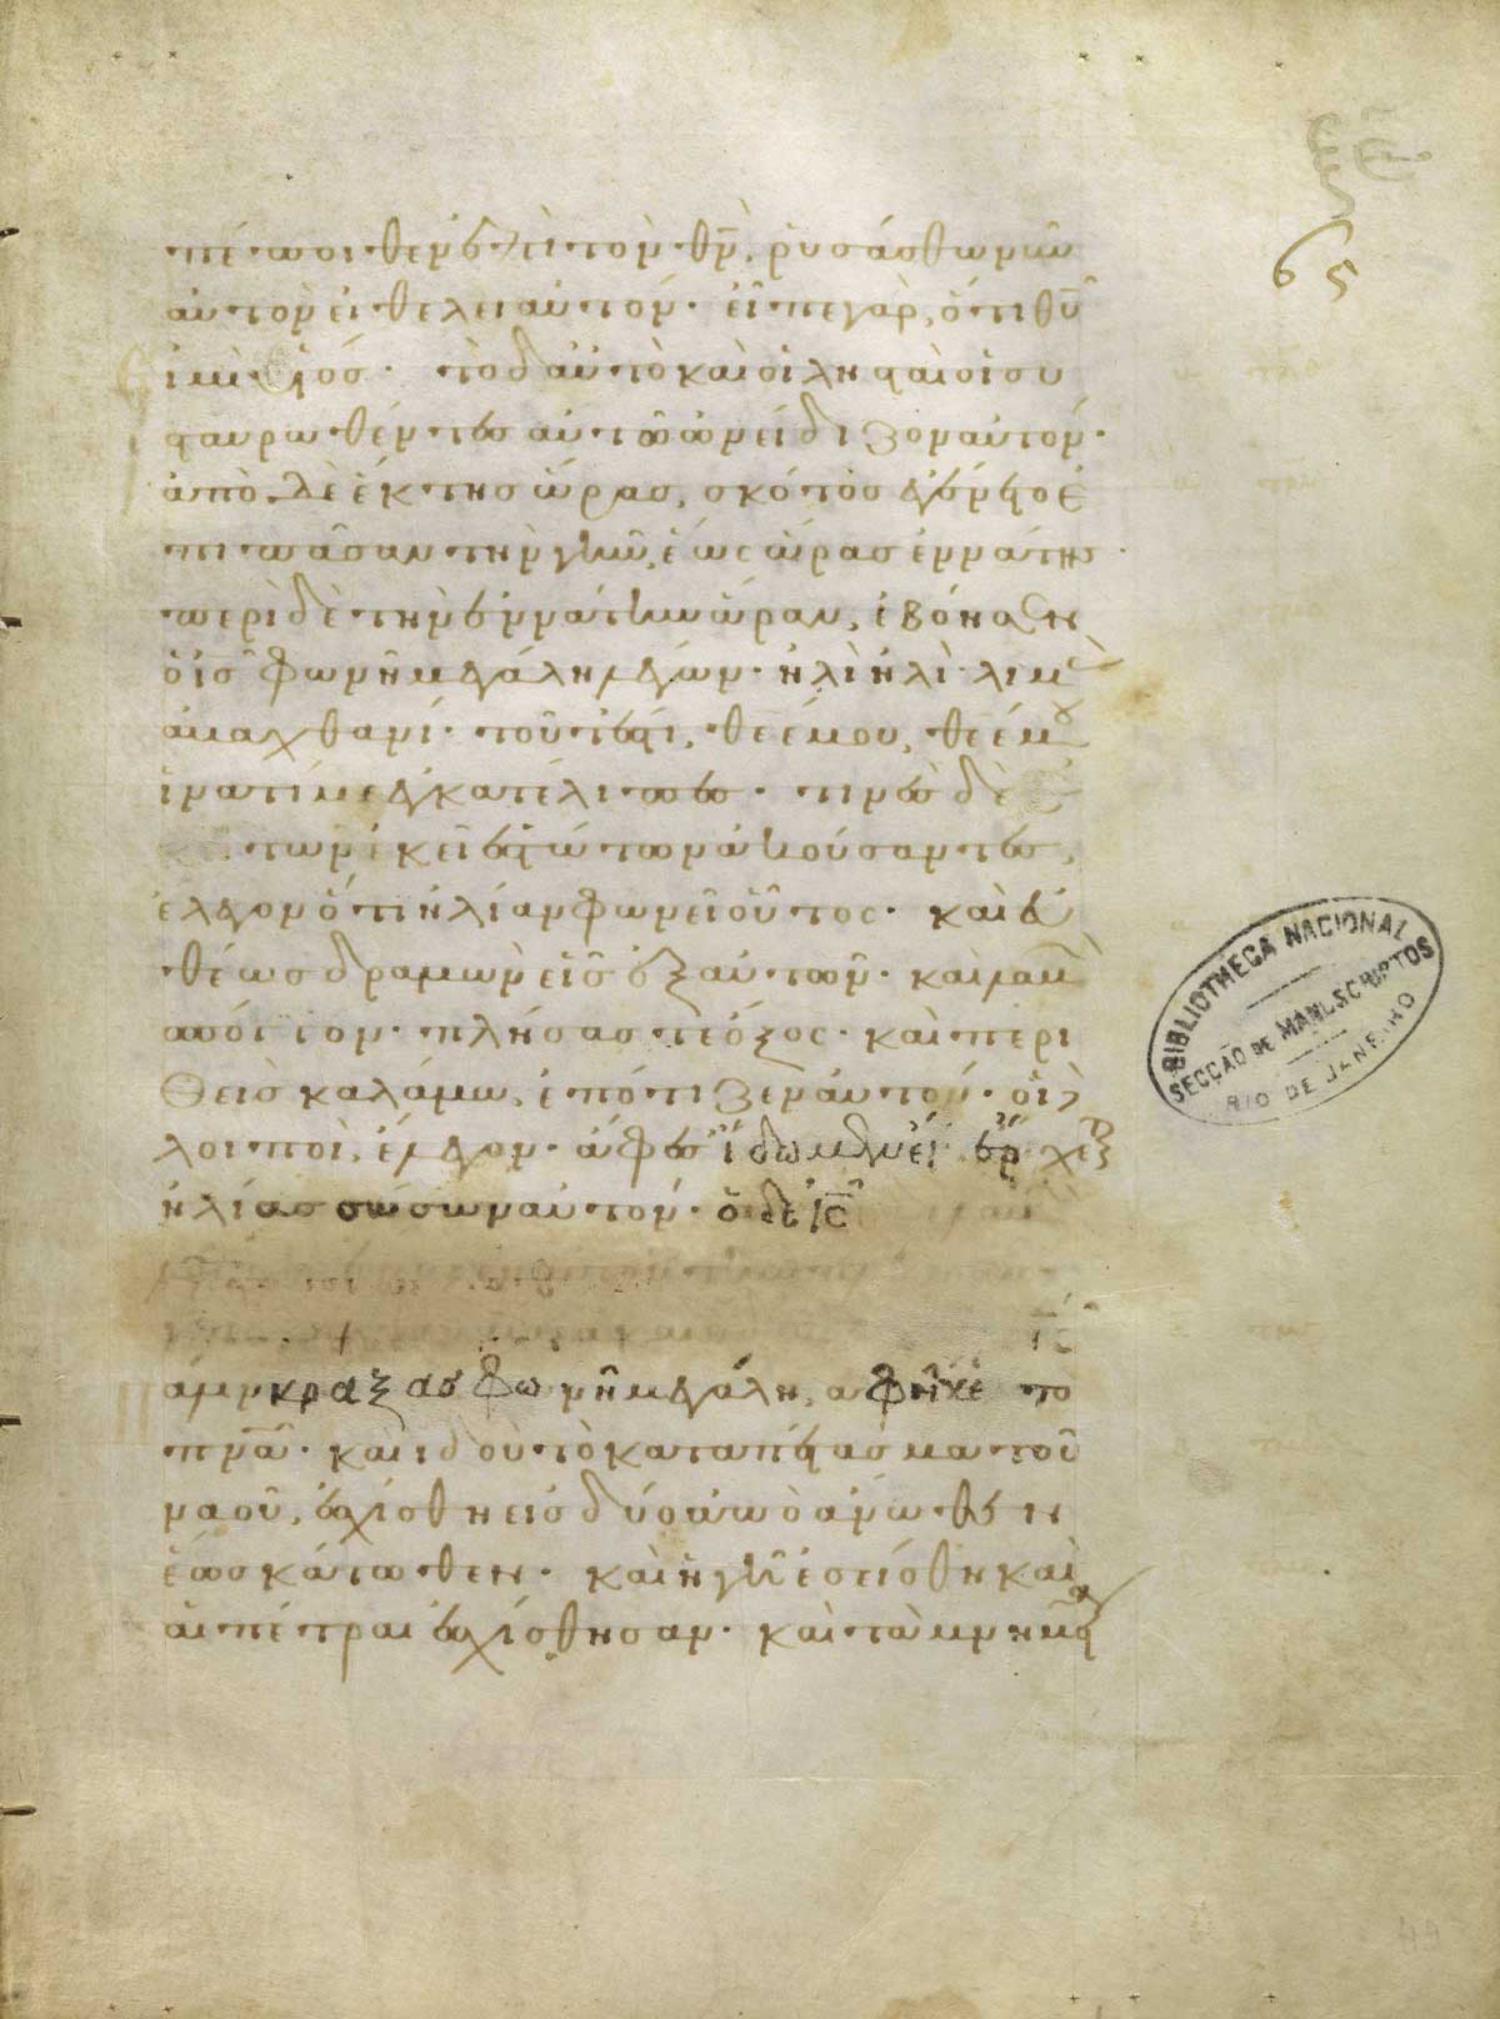 65
πέποιθεν ἐπὶ τὸν θν̄, ῥυσάσθω νῦν
αὐτὸν εἰ θέλει αὐτόν· εἶπε γὰρ, ὅτι θῡ
εἰμὶ υἱός· τὸ δ' αὐτὸ καὶ οἱ λησταὶ οἱ συ
σταυρωθέντες αὐτῶ ὠνείδιζον αὐτόν·
ἀπὸ δὲ ἕκτης ὥρας, σκότος ἐγένετο ἐ
πι πᾶσαν τὴν γῆν, ἕως ὥρας ἐννάτης·
περὶ δὲ τὴν ἐννάτην ὥραν, ἐβόησεν
ὁ ις̄ φωνῆ μεγάλη λέγων· ἠλὶ ἠλὶ λιμὰ
σαβαχθανί· τοῦτ' ἔστι, θεέ μου, θεέ μου
ἱνατί με ἐγκατέλιπες· τινὲς δὲ
τῶν ἐκεῖ ἑστώτων ἀκούσαντες,
ἔλεγον ὅτι ἠλίαν φωνεῖ οὗτος· καὶ εὐ
θέως δραμὼν εἷς ἐξ αὐτῶν· καὶ λαβὼν
σπόγγον· πλήσας τε ὄξος· καὶ περι
θεὶς καλάμω, ἐπότιζεν αὐτόν· οἱ δὲ
λοιποὶ, ἔλεγον· ἄφες ἴδωμεν εἰ ἔρχεται
ἠλίας σώσων αὐτόν· ὁ δὲ ις̄
φωνῆ μεγάλη, ἀφῆκε τὸ
πνᾱ· καὶ ἰδοὺ τὸ καταπέτασμα τοῦ
ναοῦ, ἐσχίσθη εἰς δύο ἀπὸ ἄνωθεν
ἕως κάτωθεν· καὶ ἡ γῆ ἐσείσθη καὶ
αἱ πέτραι ἐσχίσθησαν· καὶ τὰ μνημεῖα
BIBLIOTHECA NACIONAL
SECÇÃO DE MANUSCRIPTOS
RIO DE JANEIRO